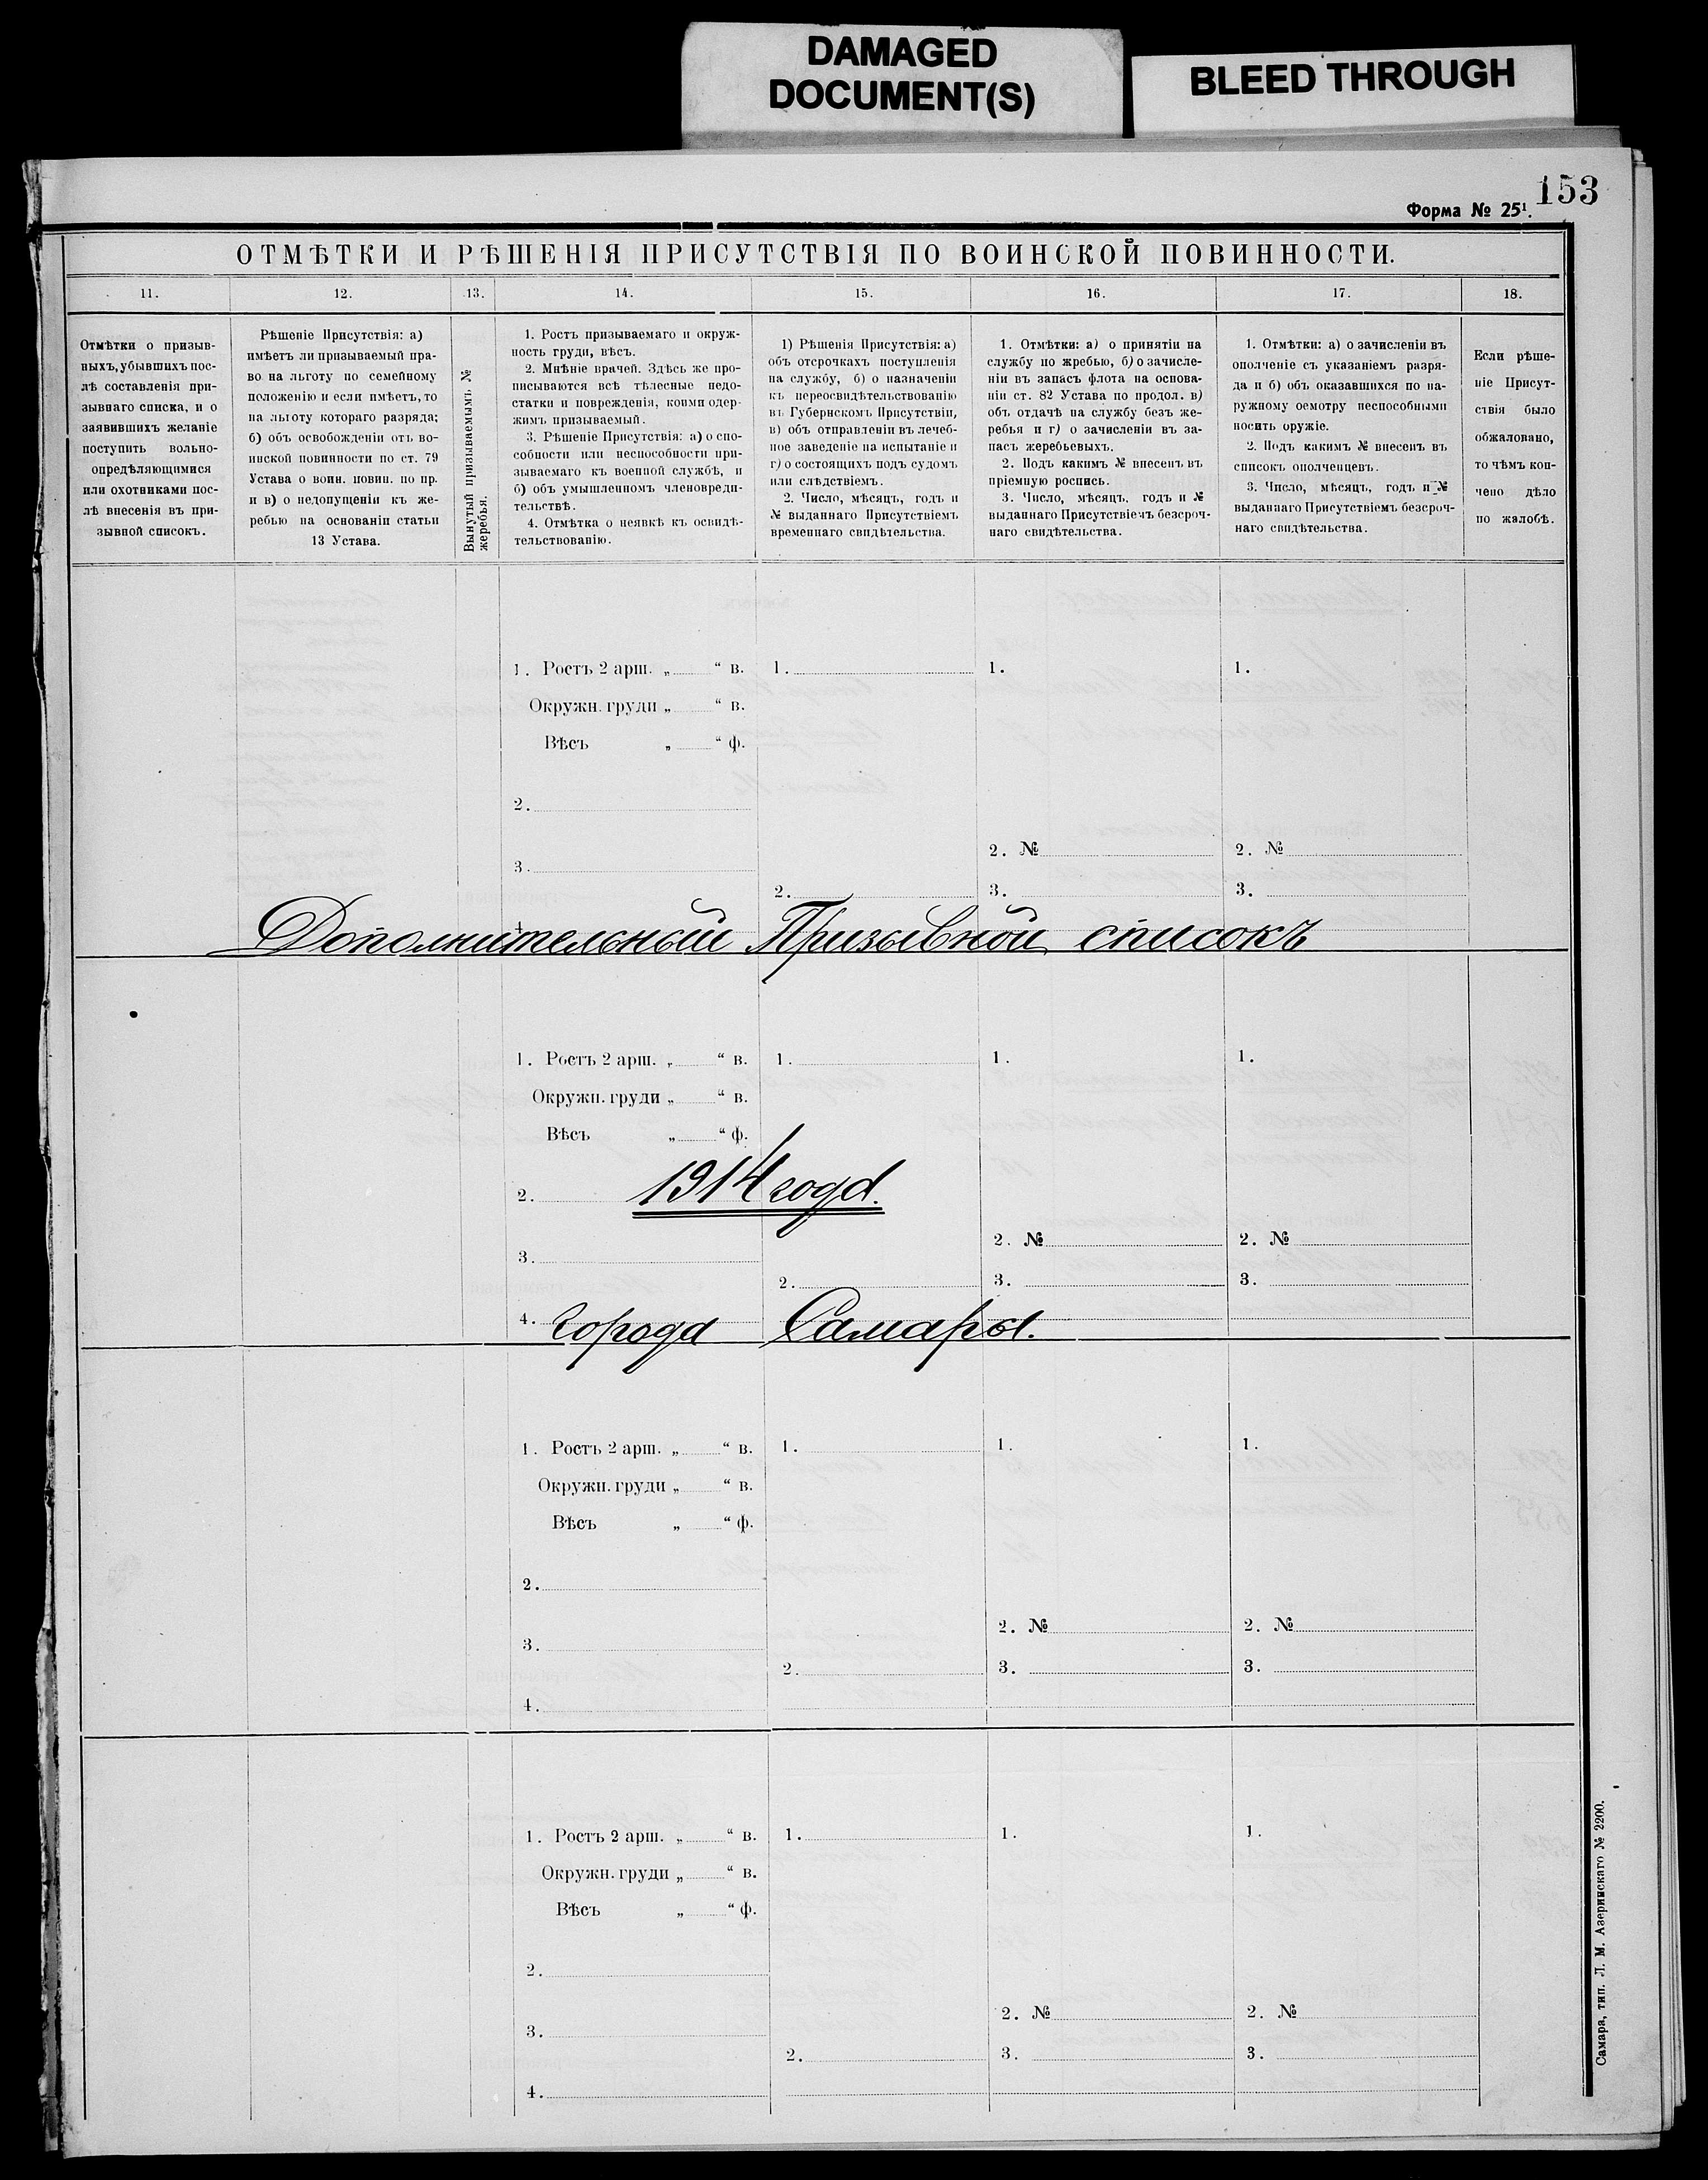 DAMAGED
DOCUMENT(S)
BLEED THROUGH
153
Форма № 25¹.
ОТМѢТКИ И РѢШЕНІЯ ПРИСУТСТВІЯ ПО ВОИНСКОЙ ПОВИННОСТИ.
11. 12. 13. 14. 15. 16. 17. 18.
Отмѣтки о призыв-
ныхъ, убывшихъ пос-
лѣ составленія при-
зывнаго списка, и о
заявившихъ желаніе
поступить вольно-
опредѣляющимися
или охотниками пос-
лѣ внесенія въ при-
зывной списокъ.
Рѣшеніе Присутствія: а)
имѣетъ ли призываемый пра-
во на льготу по семейному
положенію и если имѣетъ, то
на льготу котораго разряда;
б) объ освобожденіи отъ во-
инской повинности по ст. 79
Устава о воин. повин. по пр.
и в) о недопущеніи къ же-
ребью на основаніи статьи
13 Устава.
Вынутый призываемымъ №
жеребья.
1. Ростъ призываемаго и окруж-
ность груди, вѣсъ.
2. Мнѣніе врачей. Здѣсь же про-
писываются всѣ тѣлесные недо-
статки и поврежденія, коими одер-
жимъ призываемый.
3. Рѣшеніе Присутствія: а) о спо-
собности или неспособности при-
зываемаго къ военной службѣ, и
б) объ умышленномъ членовреди-
тельствѣ.
4. Отмѣтка о неявкѣ къ освидѣ-
тельствованію.
1) Рѣшенія Присутствія: а)
объ отсрочкахъ поступленія
на службу, б) о назначеніи
къ переосвидѣтельствованію
въ Губернскомъ Присутствіи,
в) объ отправленіи въ лечеб-
ное заведеніе на испытаніе и
г) о состоящихъ подъ судомъ
или слѣдствіемъ.
2. Число, мѣсяцъ, годъ и
№ выданнаго Присутствіемъ
временнаго свидѣтельства.
1. Отмѣтки: а) о принятіи на
службу по жребью, б) о зачисле-
ніи въ запасъ флота на основа-
ніи ст. 82 Устава по продол. в)
объ отдачѣ на службу безъ же-
ребья и г) о зачисленіи въ за-
пасъ жеребьевыхъ.
2. Подъ какимъ № внесенъ въ
пріемную роспись.
3. Число, мѣсяцъ, годъ и №
выданнаго Присутствіемъ безсроч-
наго свидѣтельства.
1. Отмѣтки: а) о зачисленіи въ
ополченіе съ указаніемъ разря-
да и б) объ оказавшихся по на-
ружному осмотру неспособными
носить оружіе.
2. Подъ какимъ № внесенъ въ
списокъ ополченцевъ.
3. Число, мѣсяцъ, годъ и №
выданнаго Присутствіемъ безсроч-
наго свидѣтельства.
Если рѣше-
ніе Присут-
ствія было
обжаловано,
то чѣмъ кон-
чено дѣло
по жалобѣ.
1. Ростъ 2 арш. „ “ в. 1. 1. 1.
Окружн. груди „ “ в.
Вѣсъ „ “ ф.
2.
2. № 2. №
3.
2. 3. 3.
4.
Дополнительный Призывной списокъ
1. Ростъ 2 арш. „ “ в. 1. 1. 1.
Окружн. груди „ “ в.
Вѣсъ „ “ ф.
2. 1914 года.
2. № 2. №
3.
2. 3. 3.
4. города Самары.
1. Ростъ 2 арш. „ “ в. 1. 1. 1.
Окружн. груди „ “ в.
Вѣсъ „ “ ф.
2.
2. № 2. №
3.
2. 3. 3.
4.
1. Ростъ 2 арш. „ “ в. 1. 1. 1.
Окружн. груди „ “ в.
Вѣсъ „ “ ф.
2.
2. № 2. №
3.
2. 3. 3.
4.
Самара, тип. Л. М. Азеринскаго № 2200.